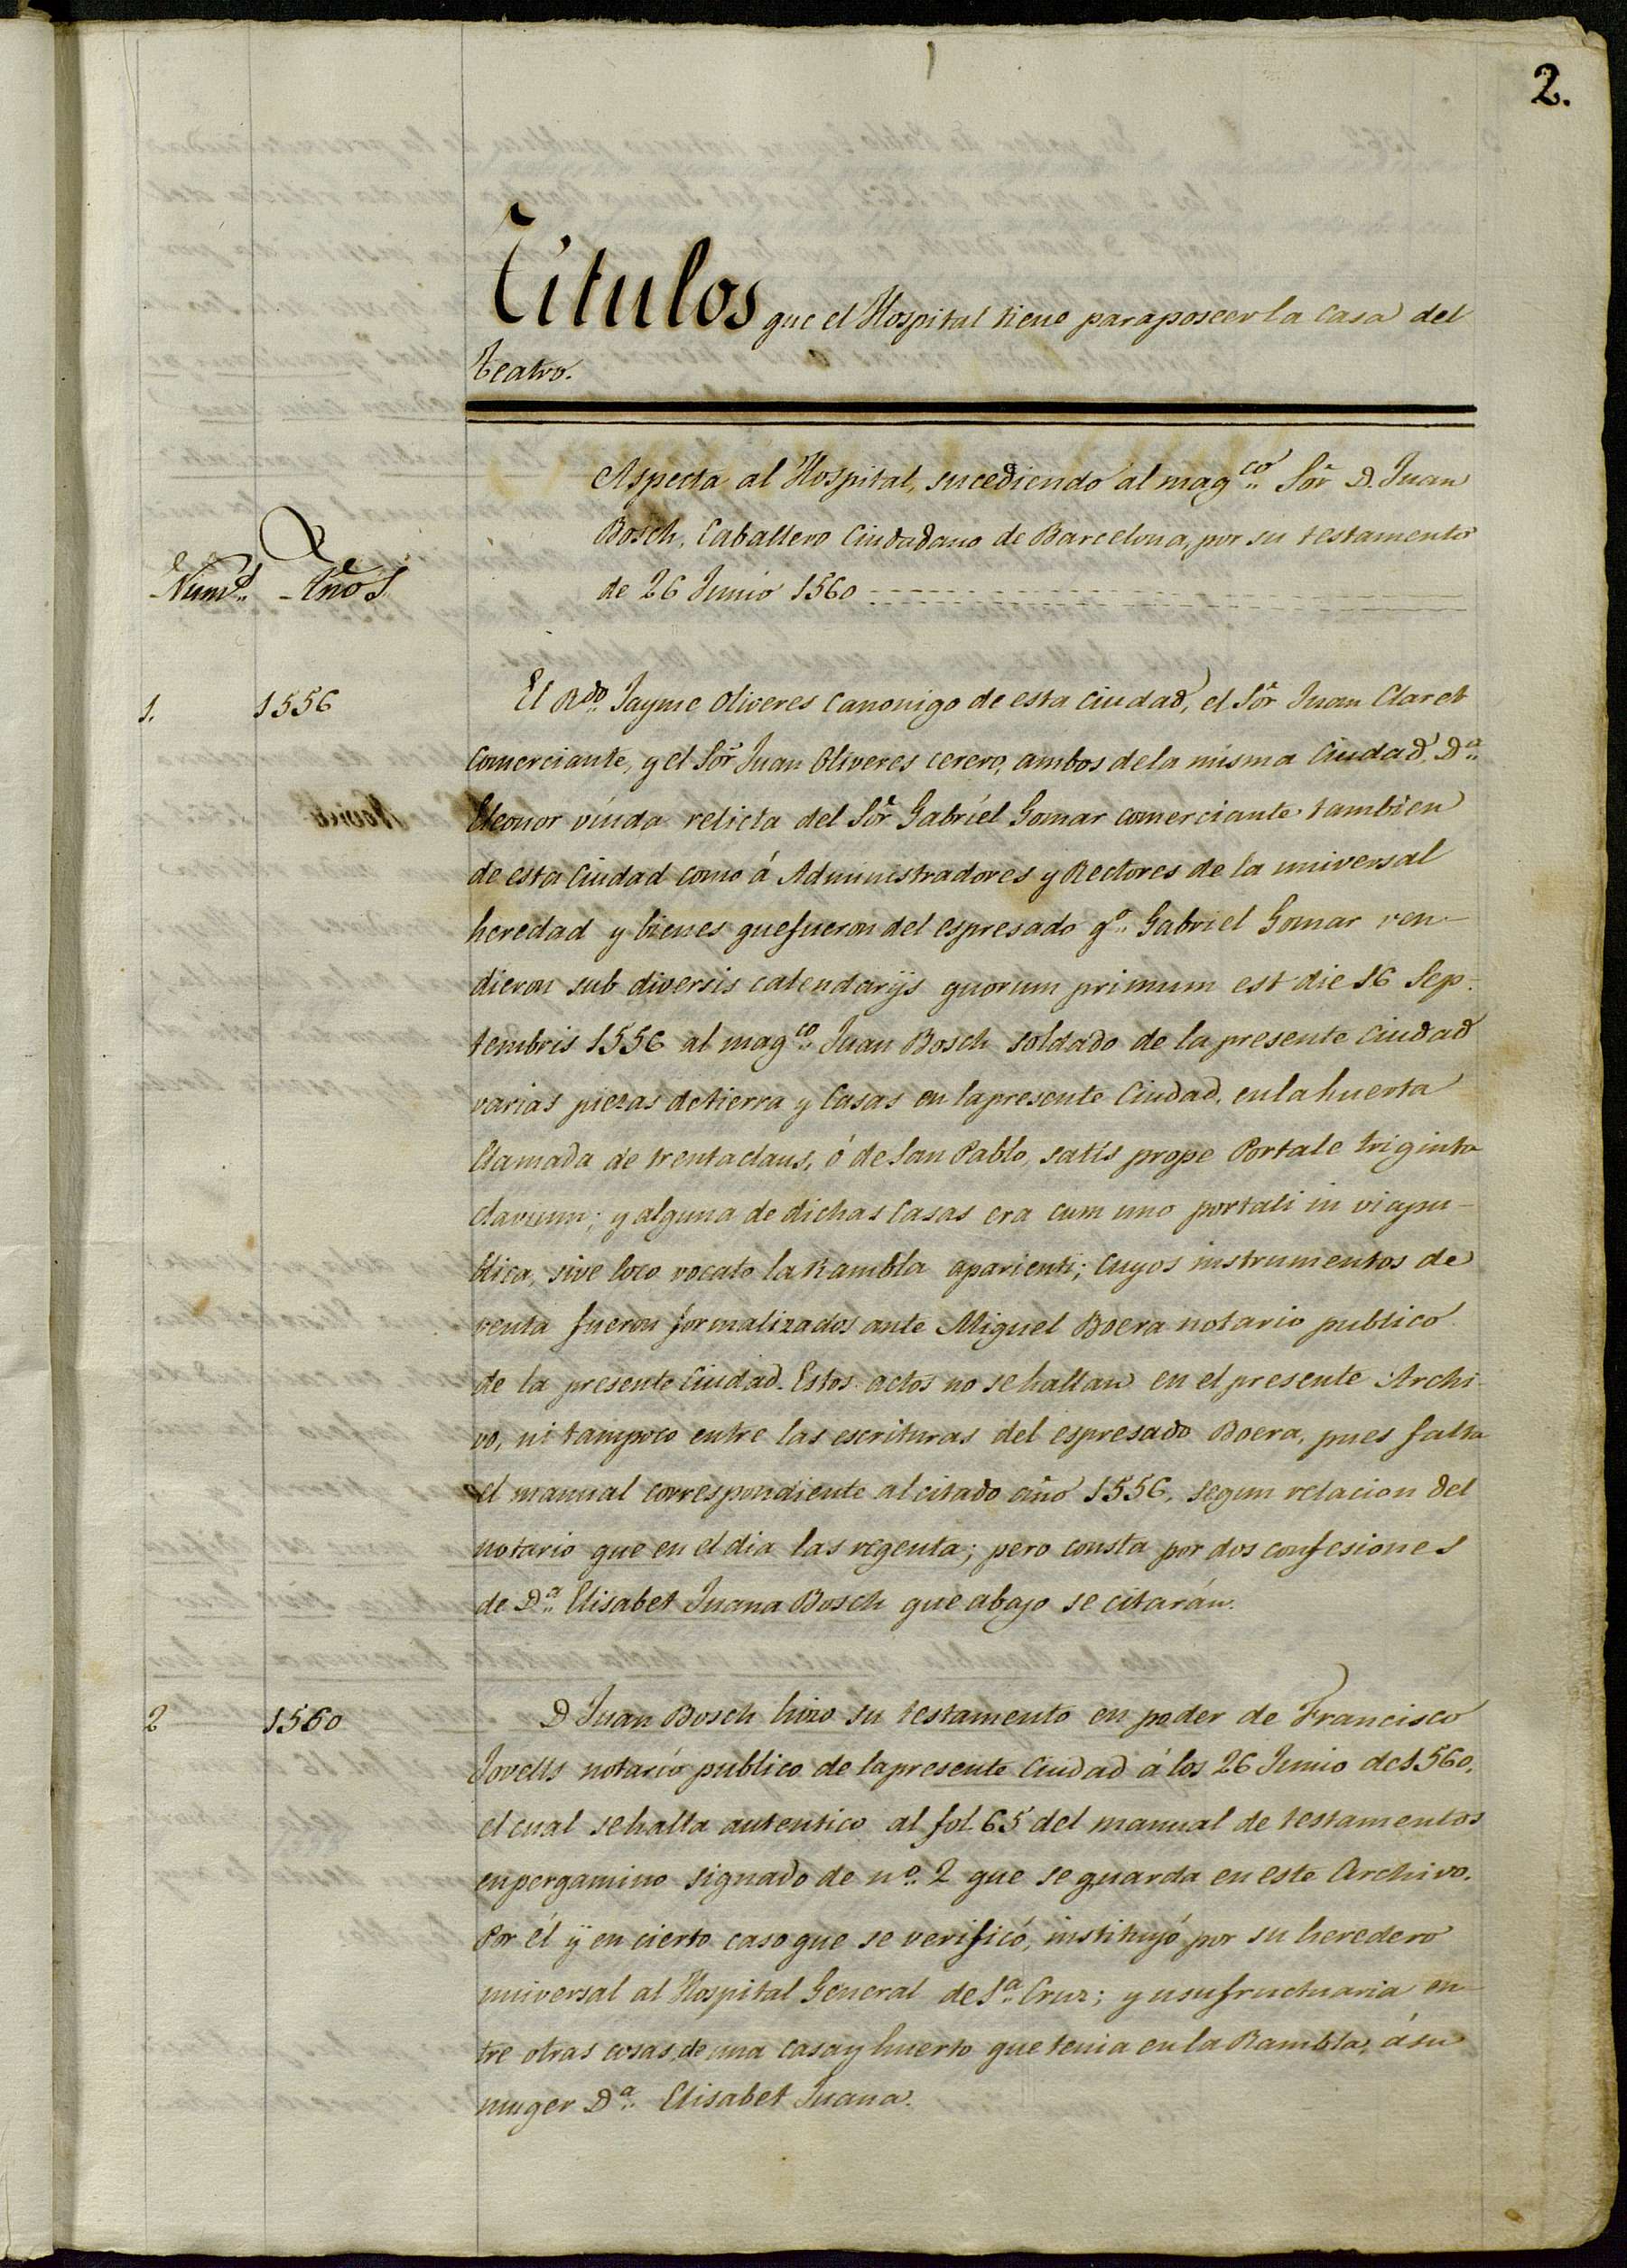 2.
Titulos que el Hospital tiene para poseer la casa del
teatro.
Aspecta al Hospital, sucediendo al mag.co Sor D. Juan
Bosch, Caballero Ciudadano de Barcelona, por su testamento
de 26 Junio 1560
Num.s Años
1. 1556 El R.do Jayme Oliveres Canonigo de esta Ciudad, el Sor Juan Claret
comerciante, y el Sor Juan Oliveres cerero, ambos de la misma Ciudad, D.a
Eleonor viuda relicta del Sor Gabriel Gomar comerciante tambien
de esta Ciudad como á Administradores y Rectores de la universal
heredad y bienes que fueron del espresado q.o Gabriel Gomar ven-
dieron sub diversis calendarijs quorum primum est die 16 Sep-
tembris 1556 al mag.co Juan Bosch soldado de la presente Ciudad
varias piezas de tierra y Casas en la presente Ciudad, en la huerta
llamada de trentaclaus, ó de San Pablo, satis prope Portale triginta
clavium; y alguna de dichas Casas era cum uno portali in via pu-
blica, sive loco vocato la Rambla aparienti; cuyos instrumentos de
venta fueron formalizados ante Miguel Boera notario publico
de la presente Ciudad. Estos actos no se hallan en el presente Archi-
vo, ni tampoco entre las escrituras del espresado Boera, pues falta
el manual correspondiente al citado año 1556, segun relacion del
notario que en el dia las regenta; pero consta por dos confesiones
de D.a Elisabet Juana Bosch que abajo se citarán.
2 1560 D Juan Bosch hizo su testamento en poder de Francisco
Jovells notario publico de la presente Ciudad á los 26 Junio de 1560,
el cual se halla autentico al fol. 65 del manual de testamentos
en pergamino signado de n.o 2 que se guarda en este Archivo.
Por él ÿ en cierto caso que se verificó, instituyó por su heredero
universal al Hospital General de S.a Cruz; y usufructuaria en-
tre otras cosas, de una casa y huerto que tenia en la Rambla, á su
muger D.a Elisabet Juana.